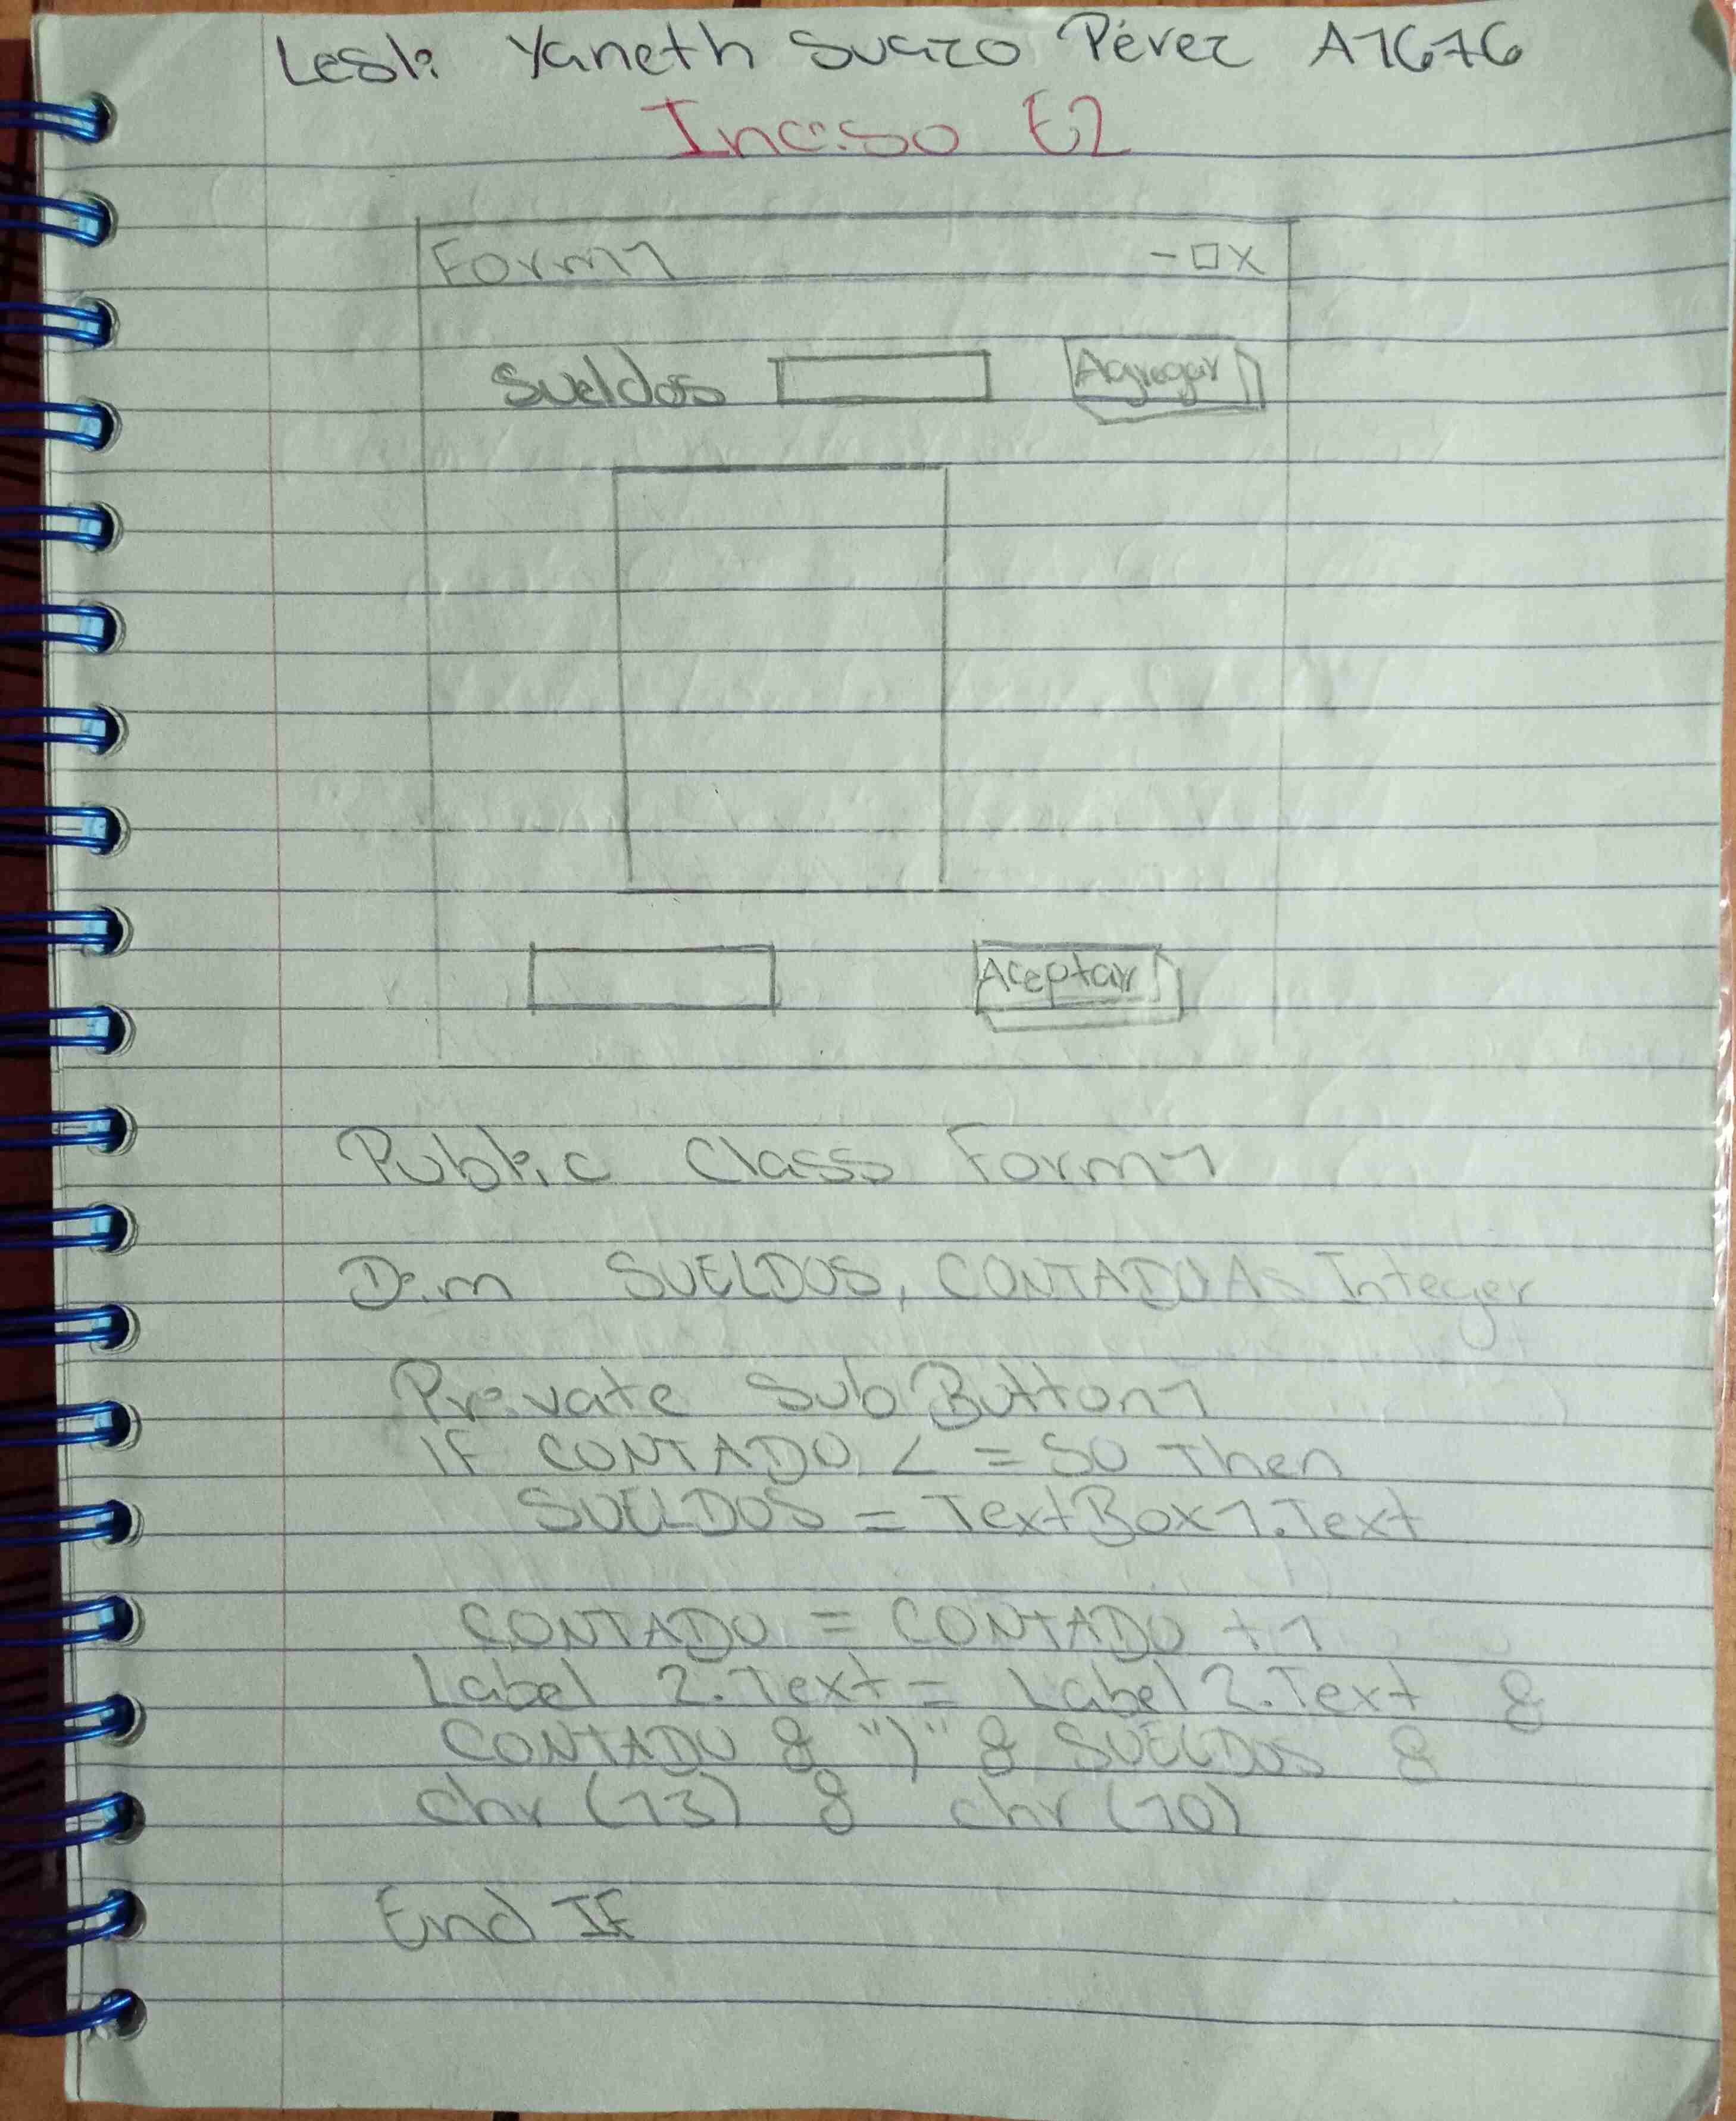 Lesli Yaneth Suazo Pérez A1676
Inciso E2
Form1 - □ X
Sueldos Agregar
Aceptar
Public Class Form1
Dim SUELDOS, CONTADO As Integer
Private Sub Button1
IF CONTADO < = 50 Then
SUELDOS = TextBox1.Text
CONTADO = CONTADO + 1
Label 2.Text = Label 2.Text &
CONTADO & ")" & SUELDOS &
chr (13) & chr (10)
End IF